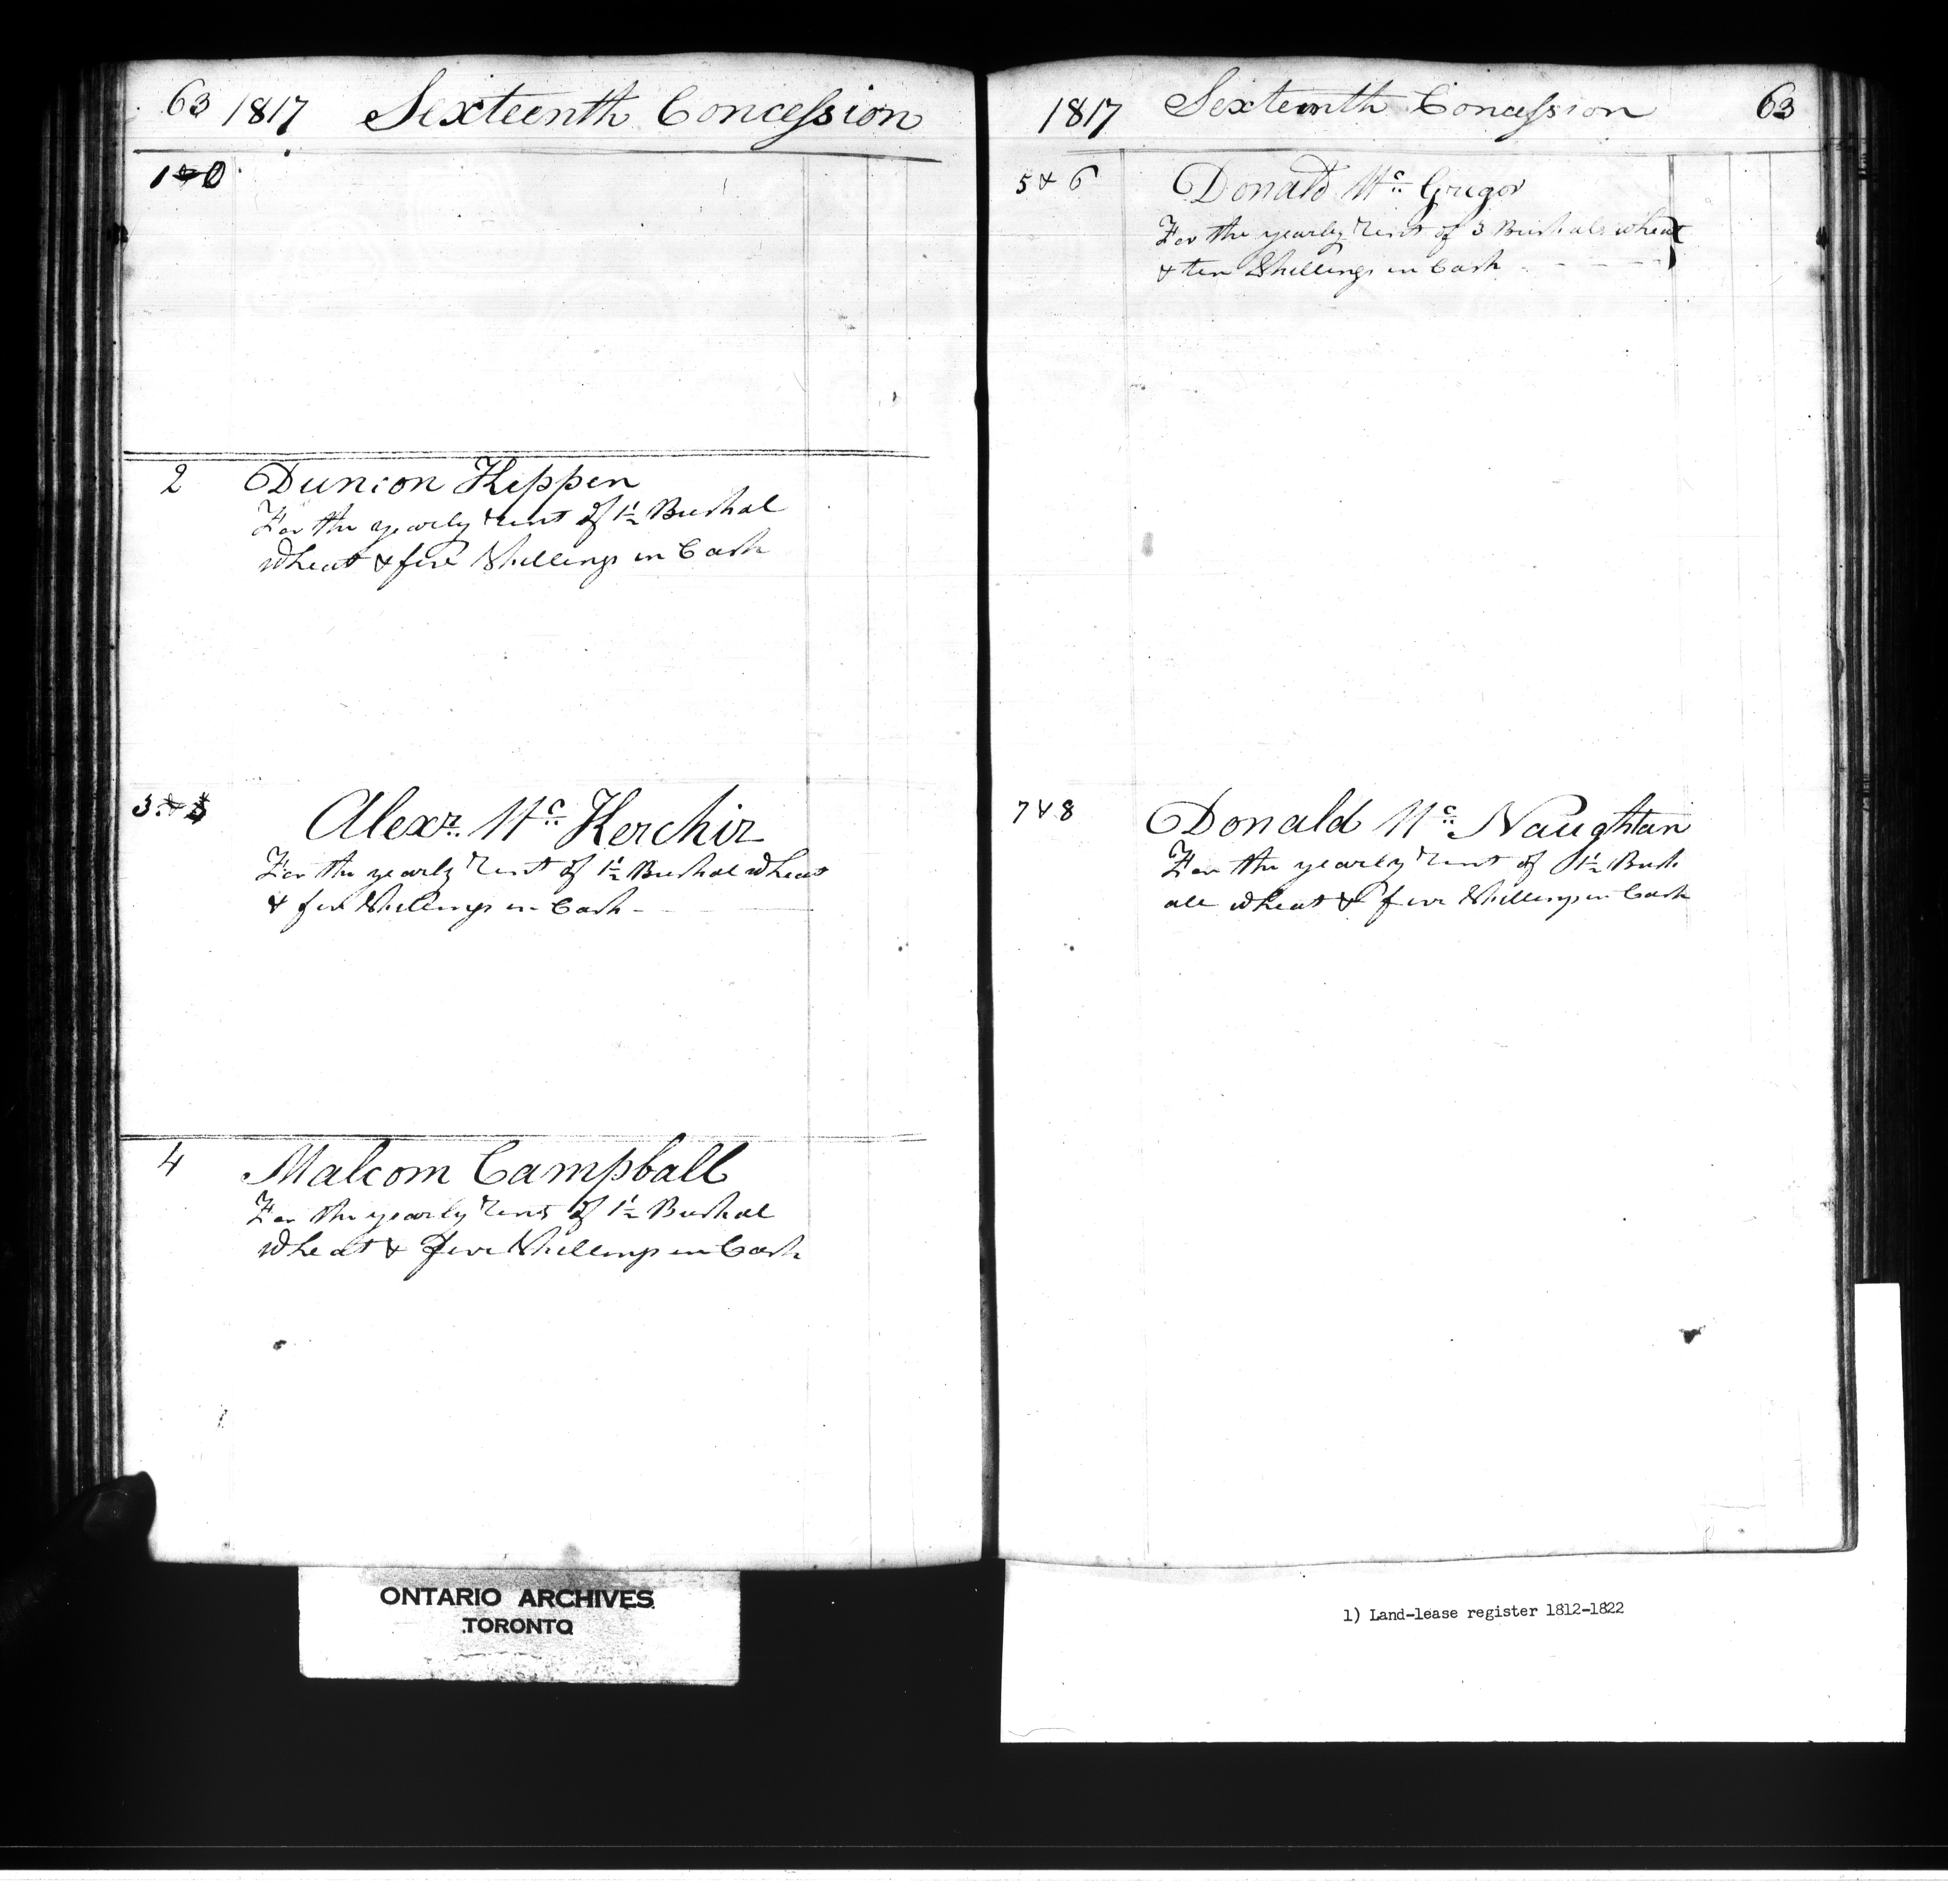 63 1817 Sexteenth Concession
1
2 Duncon Keppen
For the yearly rent of 1½ Bushal
wheat & five Shillings in Cash
3
Alexr. Mc Kerchir
For the yearly rent of 1½ Bushal wheat
& five Shillings in Cash -
4 Malcom Campball
For the yearly rent of 1½ Bushal
wheat & five Shillings in Cash
1817 Sexteenth Concession 63
5 & 6 Donald Mc Gregor
For the yearly rent of 3 Bushals wheat
& ten Shillings in Cash - - - -
7 & 8 Donald Mc Naughtan
For the yearly rent of 1½ Bush
all wheat & five Shillings in Cash
ONTARIO ARCHIVES
TORONTO
1) Land-lease register 1812-1822